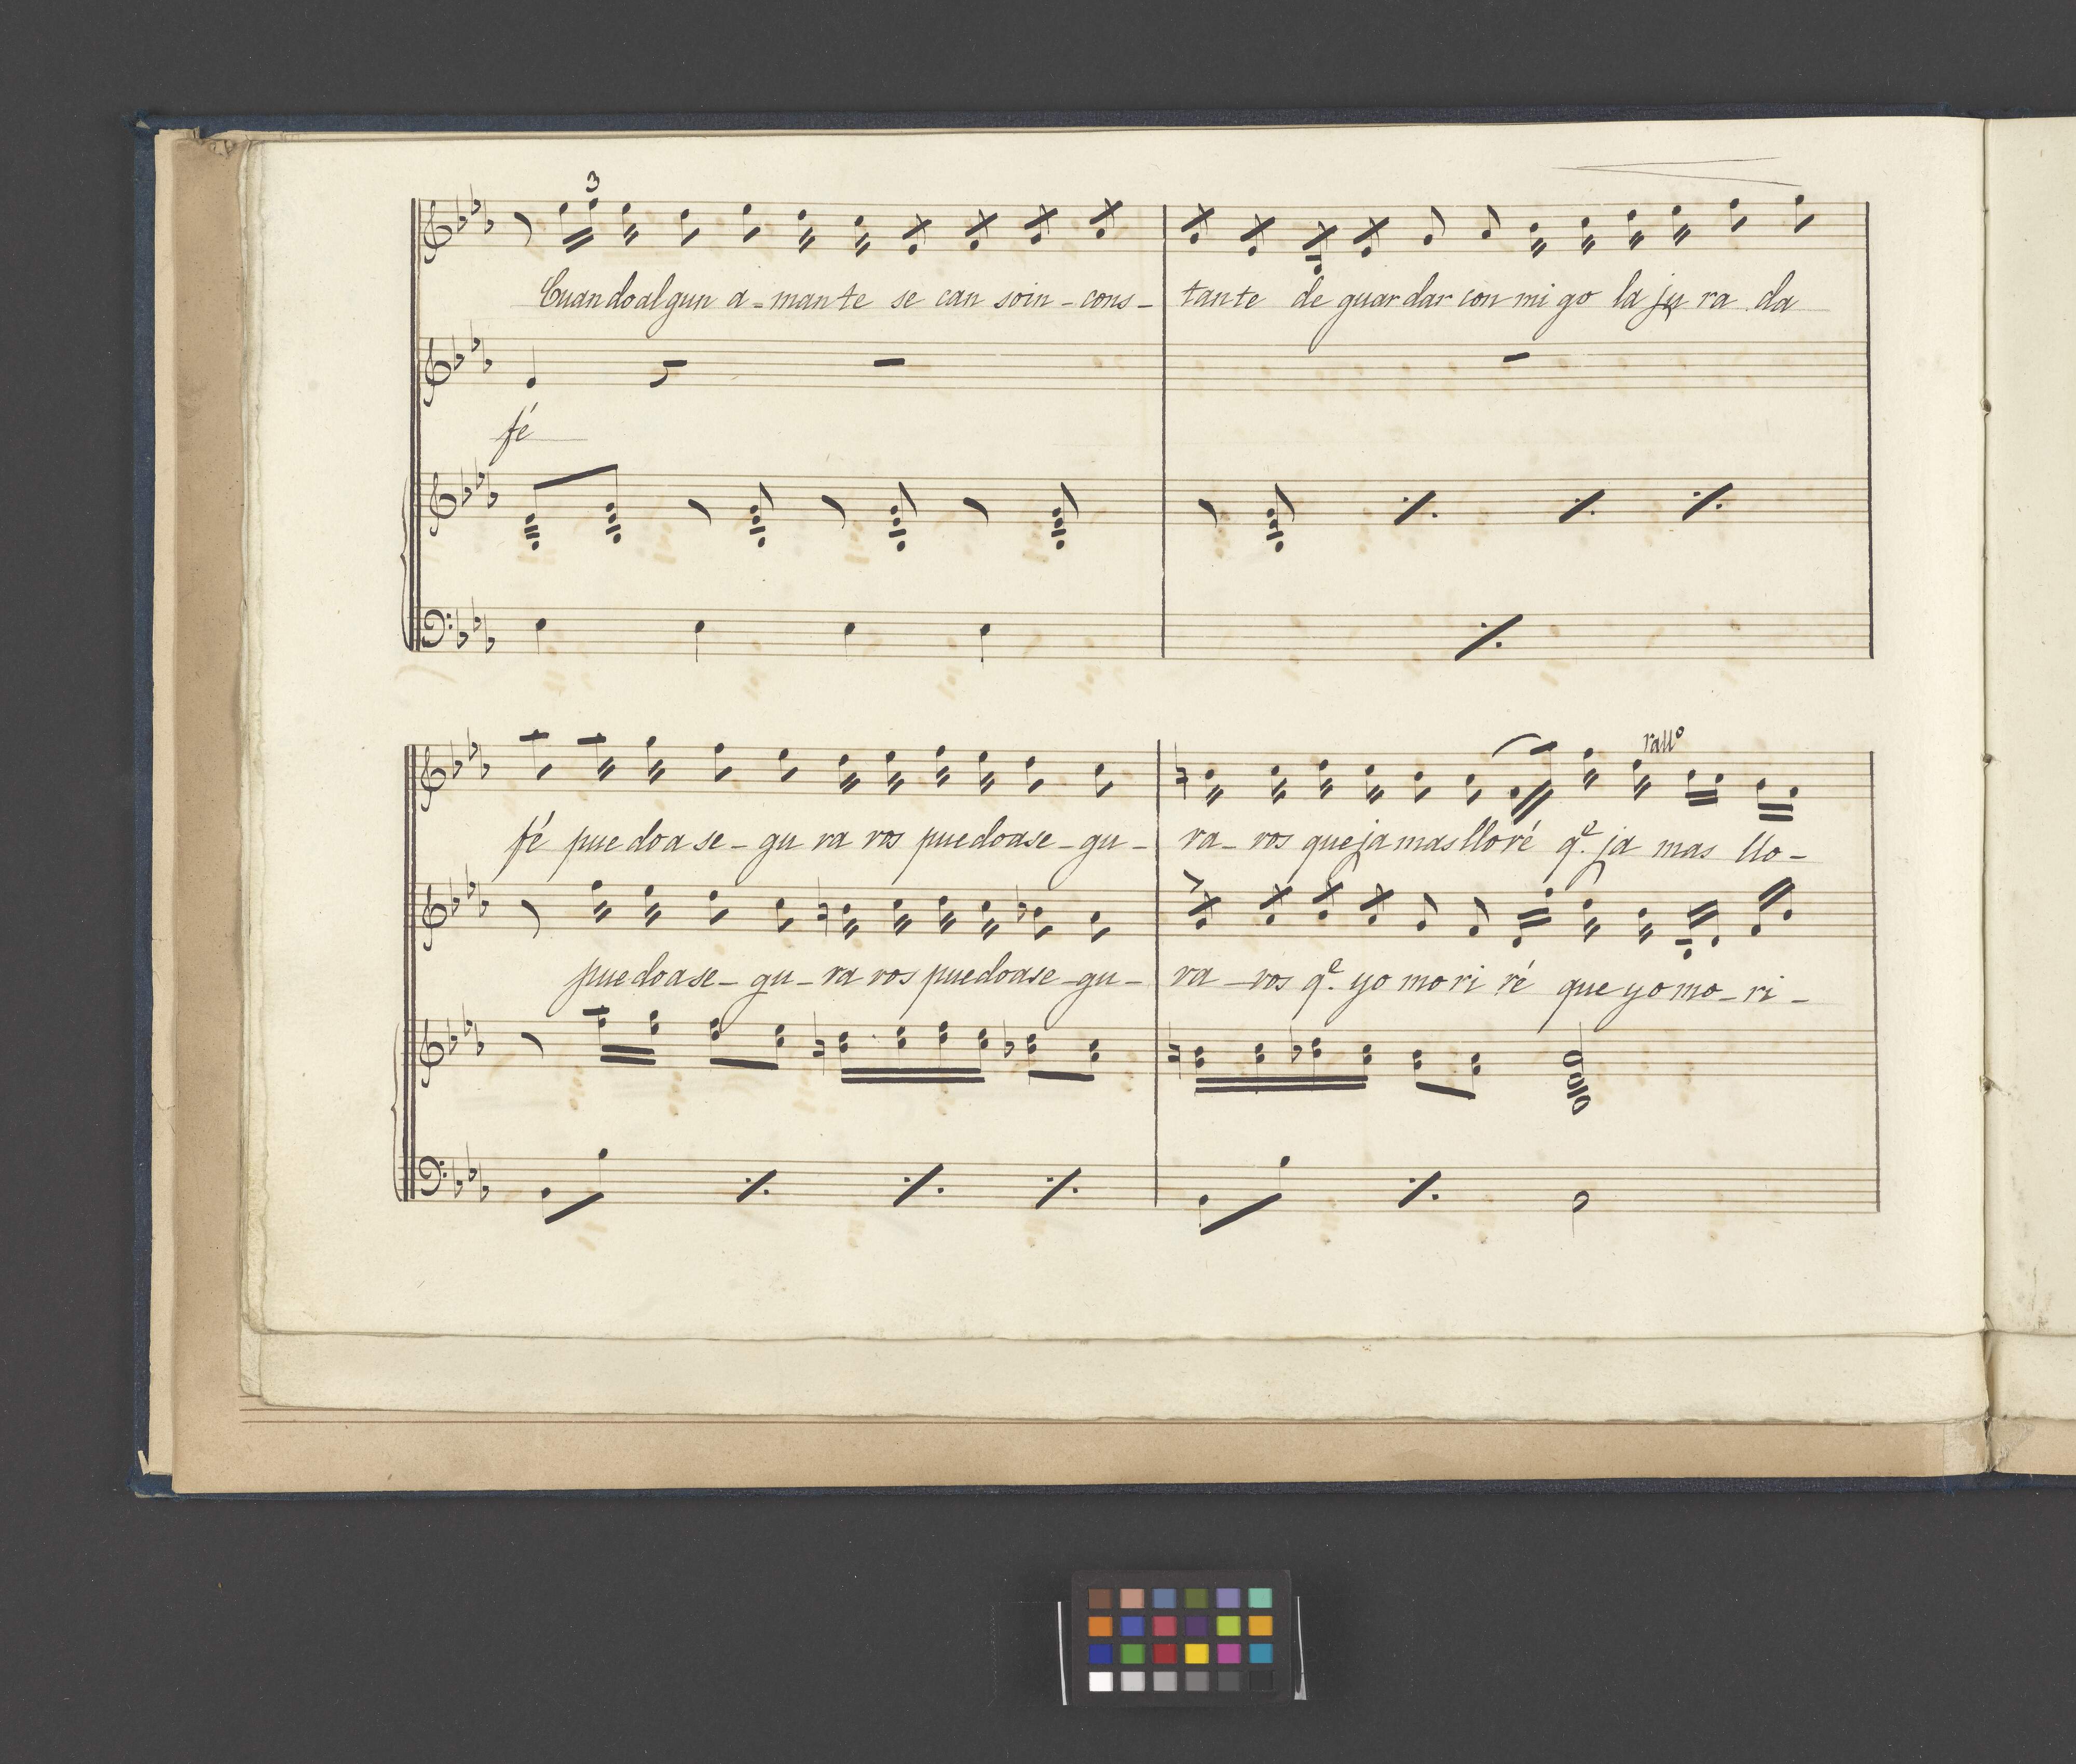 3
Cuando algun a-mante se can soin-cons- tante de guardar con mi go la ju ra da
fé
rallº
fé puedoase-gu ra ros puedoase-gu- ra-ros que ja mas lloré qᵉ. ja mas llo-
puedoase-gu-ra ros puedoase-gu- ra-ros qᵉ. yo mo ri ré que yo mo-ri-